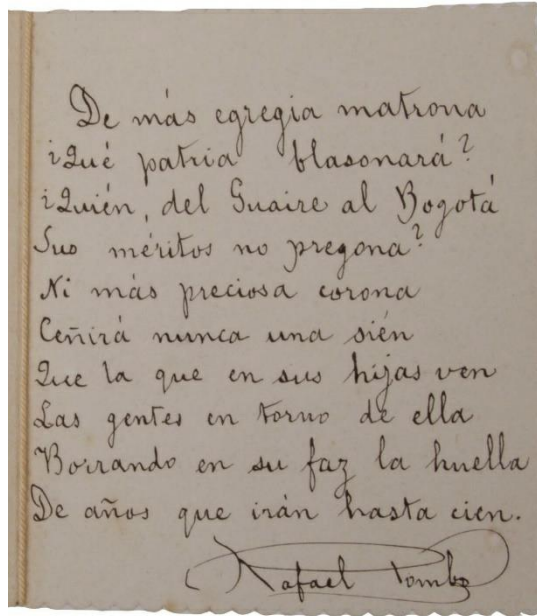 De más egregia matrona
¿Qué patria blasonará?
¿Quién, del Guaire al Bogotá
Sus méritos no pregona?
Ni más preciosa corona
Ceñirá nunca una sién
Que la que en sus hijas ven
Las gentes en torno de ella
Borrando en su faz la huella
De años que irán hasta cien.
Rafael Pombo